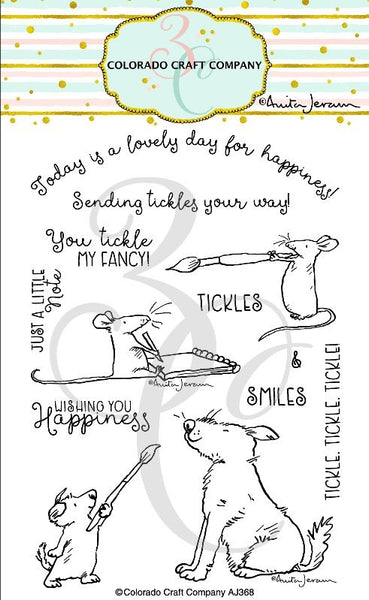 COLORADO CRAFT COMPANY
©Anita Jeram
Today is a lovely day for happiness!
Sending tickles your way!
You tickle
MY FANCY!
JUST A LITTLE
Note
TICKLES
©Anita Jeram
&
SMILES
WISHING YOU
Happiness
TICKLE, TICKLE, TICKLE!
©Anita Jeram
©Colorado Craft Company AJ368
3C
3C